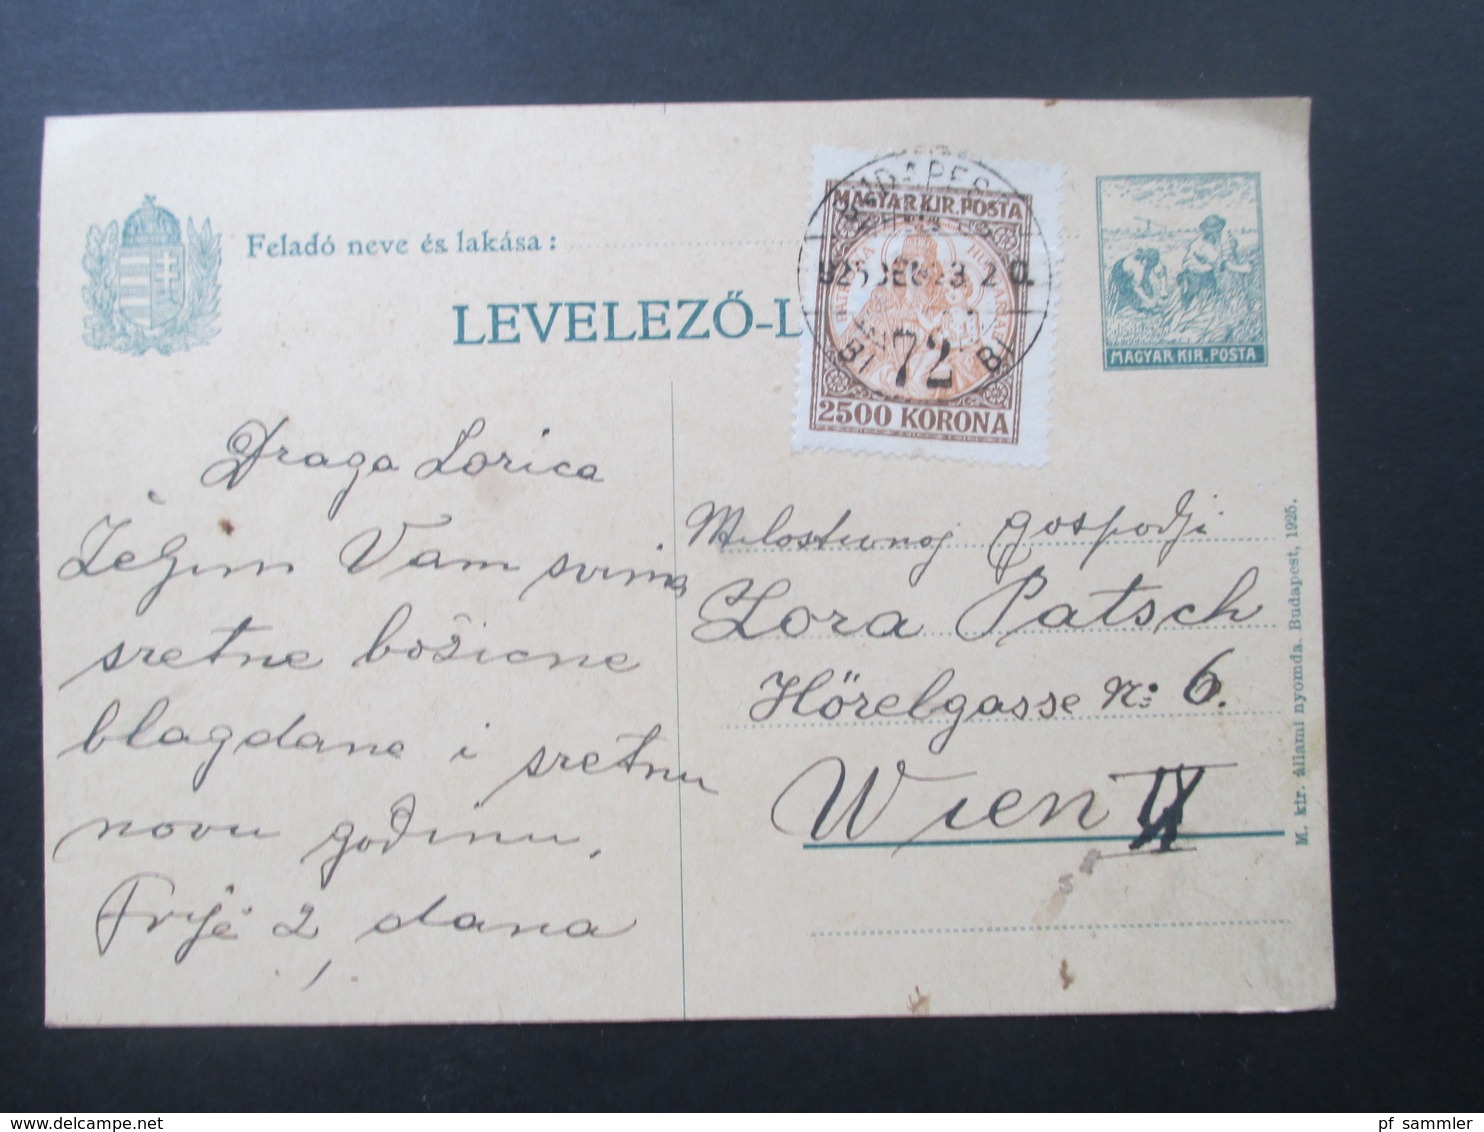 Feladó neve és lakása:
LEVELEZŐ-L
MAGYAR KIR. POSTA
2500 KORONA
72
MAGYAR KIR. POSTA
Draga Zorica
Želim Vam svima
sretne božićne
blagdane i sretnu
novu godinu.
Prije 2 dana
Milostivnoj gospodji
Zora Patsch
Hörelgasse N: 6.
Wien IX
M. kir. állami nyomda. Budapest, 1925.
delcampe.net
pf_sammler